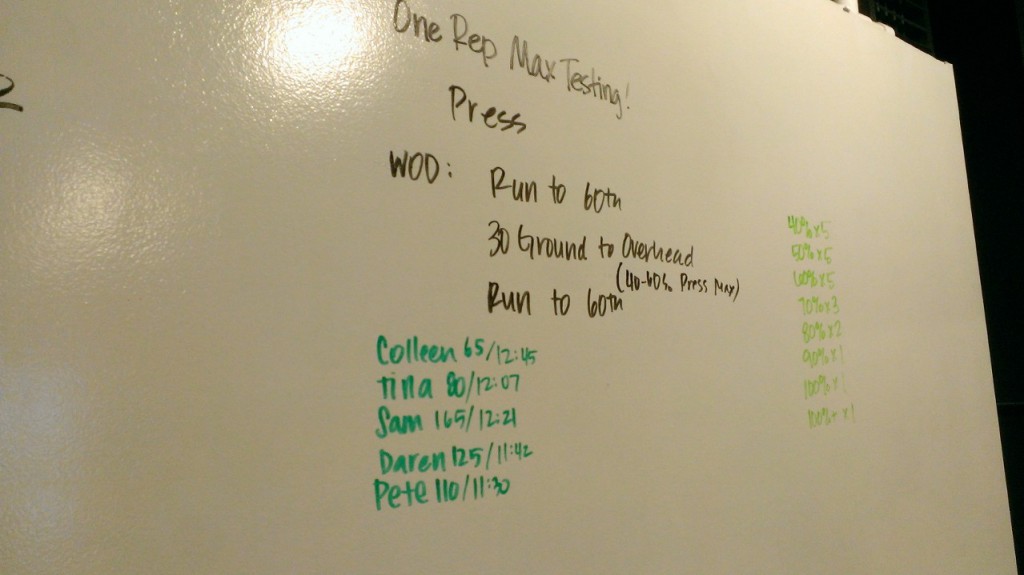 2
One Rep Max Testing!
Press
WOD: Run to 60th
30 Ground to Overhead
(40-60% Press Max)
Run to 60th
Colleen 65/12:45
Tina 80/12:07
Sam 165/12:21
Daren 125/11:42
Pete 110/11:30
40% x 5
50% x 5
60% x 5
70% x 3
80% x 2
90% x 1
100% x 1
100%+ x 1